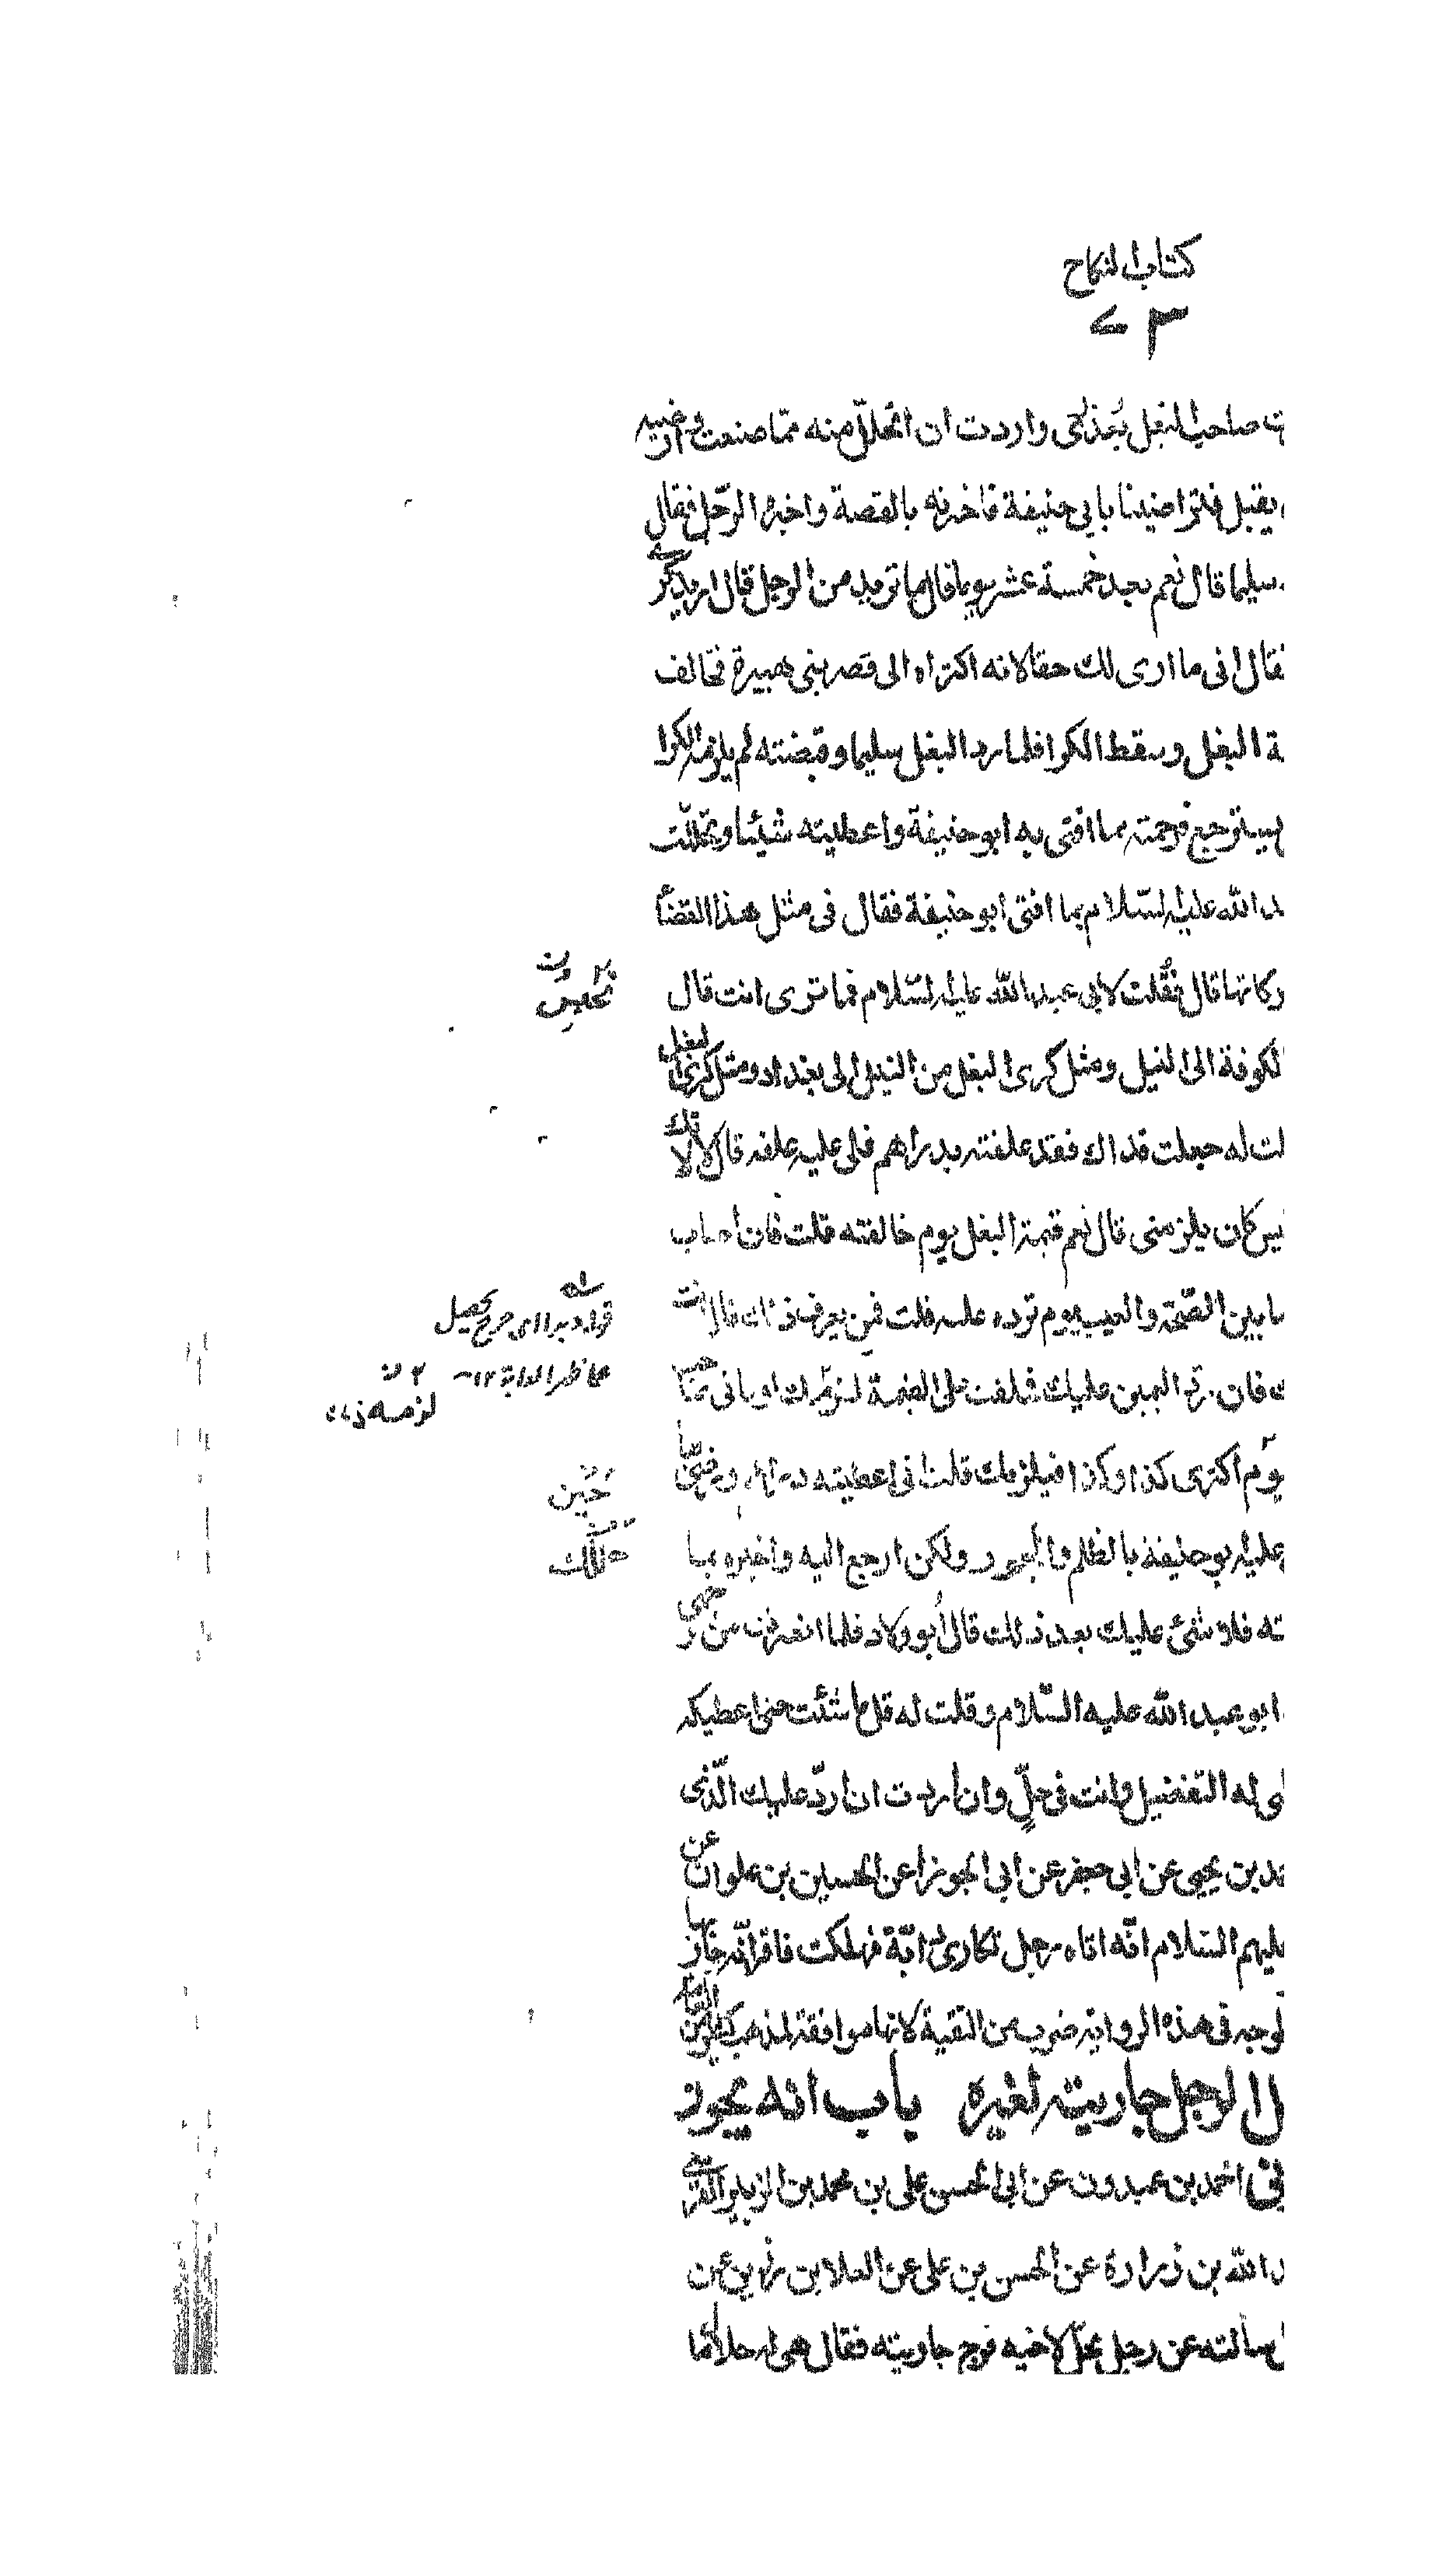 كتاب النكاح
٧٣
ت صاحب البغل بعذري واردت ان اتحلل منه مما صنعت وارضيه
يقبل فتراضينا بابي حنيفة فاخبرته بالقصة واخبره الرجل فقال
سليما قال نعم بعد خمسة عشر يوما قال فما تريد من الرجل قال اريد كرى
فقال انى ما ارى لك حقا لانه اكتراه الى قصر بنى هبيرة فخالف
ة البغل وسقط الكرا فلما رد البغل سليما وقبضته لم يلزمه الكرا
يسترجع فرحمته مما افتى به ابو حنيفة واعطيته شيئا وتحللت
د الله عليه السلام بما افتى ابو حنيفة فقال فى مثل هذا القضأ
بركاتها قال فقلت لابي عبد الله عليه السلام فما ترى انت قال
تحبس
الكوفة الى النيل ومثل كرى البغل من النيل الى بغداد ومثل كرى البغل
لت له جعلت فداك فقد علفته بدراهم فلى عليه علفه قال لا لانك
ليس كان يلزمنى قال نعم قيمة البغل يوم خالفته قلت فان أصاب
ما بين الصحة والعيب يوم ترده عليه قلت فمن يعرف ذلك قال انت
ك فان رد اليمين عليك فحلفت على القيمة لزمك او ياتى
يوم اكترى كذا وكذا فيلزمك قلت انى اعطيته دراهم ورضى بها
عليه ابو حنيفة بالظلم والجور ولكن ارجع اليه واخبره بما
ته فلا شئ عليك بعد ذلك قال أبو ولاد فلما انصرفت من
ابو عبد الله عليه السلام وقلت له قل ما شئت حتى اعطيكه
ى له التفضيل وانت فى حلّ وان أردت ان أردّ عليك الّذى
مد بن يحيى عن ابي جعفر عن ابي الجوزأ عن الحسين بن علوان عن
عليهم السلام انّه اتاه رجل تكارى دابّة فهلكت فاقر انّه جاز بها
لوجه فى هذه الرواية ضرب من التقية لانها موافقة لمذهب كثير من العامة
ل الرجل جاريته لغيره باب انه يجوز
نى احمد بن عبدون عن ابي الحسن على بن محمد بن الزبير القرشى
د الله بن زرارة عن الحسن بن على عن العلا بن رزين عن
ل سالته عن رجل يحلّ لاخيه فرج جاريته فقال هى له حلال ما